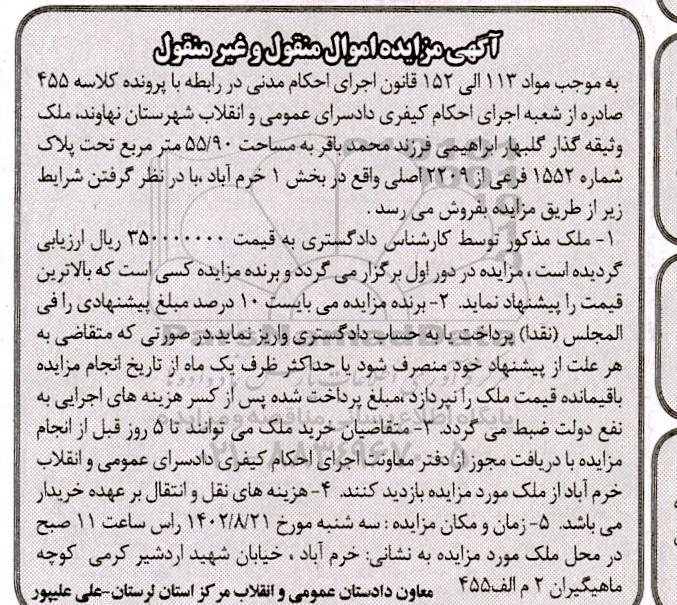 آگهی مزایده اموال منقول و غیر منقول
به موجب مواد ۱۱۳ الی ۱۵۲ قانون اجرای احکام مدنی در رابطه با پرونده کلاسه ۴۵۵
صادره از شعبه اجرای احکام کیفری دادسرای عمومی و انقلاب شهرستان نهاوند، ملک
وثیقه گذار گلبهار ابراهیمی فرزند محمد باقر به مساحت ۵۵/۹۰ متر مربع تحت پلاک
شماره ۱۵۵۲ فرعی از ۲۲۰۹ اصلی واقع در بخش ۱ خرم آباد ،با در نظر گرفتن شرایط
زیر از طریق مزایده بفروش می رسد .
۱- ملک مذکور توسط کارشناس دادگستری به قیمت ۳۵۰۰۰۰۰۰۰۰ ریال ارزیابی
گردیده است ، مزایده در دور اول برگزار می گردد و برنده مزایده کسی است که بالاترین
قیمت را پیشنهاد نماید. ۲- برنده مزایده می بایست ۱۰ درصد مبلغ پیشنهادی را فی
المجلس (نقدا) پرداخت یا به حساب دادگستری واریز نماید در صورتی که متقاضی به
هر علت از پیشنهاد خود منصرف شود یا حداکثر ظرف یک ماه از تاریخ انجام مزایده
باقیمانده قیمت ملک را نپردازد ،مبلغ پرداخت شده پس از کسر هزینه های اجرایی به
نفع دولت ضبط می گردد. ۳- متقاضیان خرید ملک می توانند تا ۵ روز قبل از انجام
مزایده با دریافت مجوز از دفتر معاونت اجرای احکام کیفری دادسرای عمومی و انقلاب
خرم آباد از ملک مورد مزایده بازدید کنند. ۴- هزینه های نقل و انتقال بر عهده خریدار
می باشد. ۵- زمان و مکان مزایده : سه شنبه مورخ ۱۴۰۲/۸/۲۱ راس ساعت ۱۱ صبح
در محل ملک مورد مزایده به نشانی: خرم آباد ، خیابان شهید اردشیر کرمی کوچه
ماهیگیران ۲ م الف۴۵۵ معاون دادستان عمومی و انقلاب مرکز استان لرستان-علی علیپور